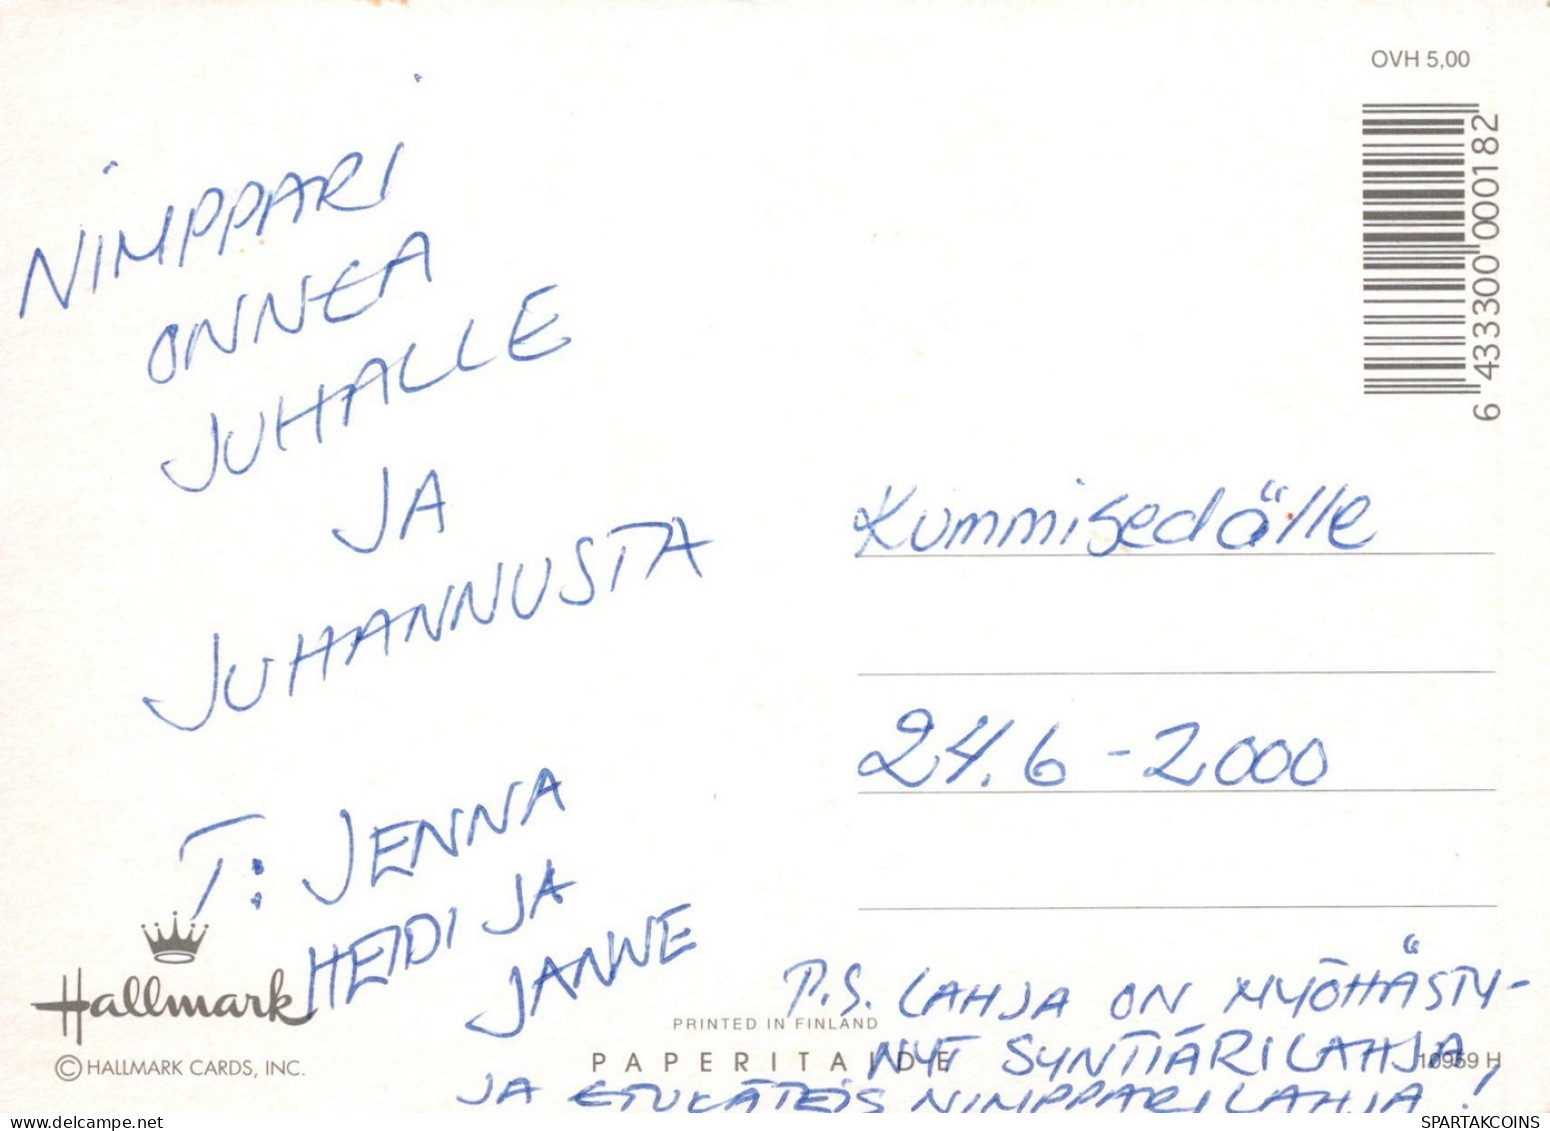 NIMPPARI
ONNEA
JUHALLE
JA
JUHANNUSTA
T: JENNA
HEIDI JA
JANNE
Hallmark
© HALLMARK CARDS, INC.
PRINTED IN FINLAND
PAPERITAIDE
OVH 5,00
6 433300 000182
Kummisedälle
24.6-2000
P.S. LAHJA ON MYÖHÄSTY-
NYT SYNTTÄRILAHJA
JA ETUKÄTEIS NIMPPARILAHJA!
10959 H
delcampe.net
SPARTAKCOINS